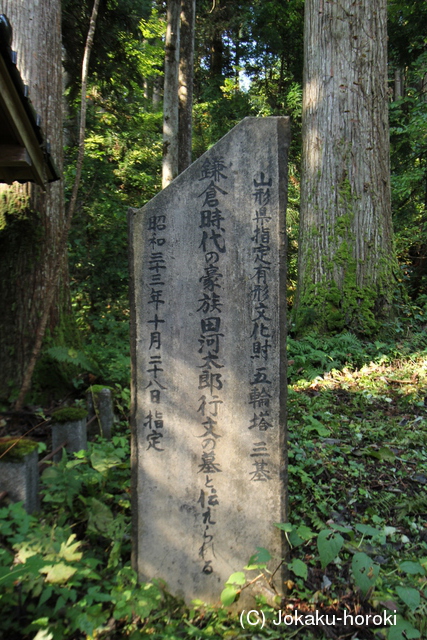 山形県指定有形文化財 五輪塔 三基
鎌倉時代の豪族田河太郎行文の墓と伝えられる
昭和三十三年十月二十八日 指定
(C) Jokaku-horoki